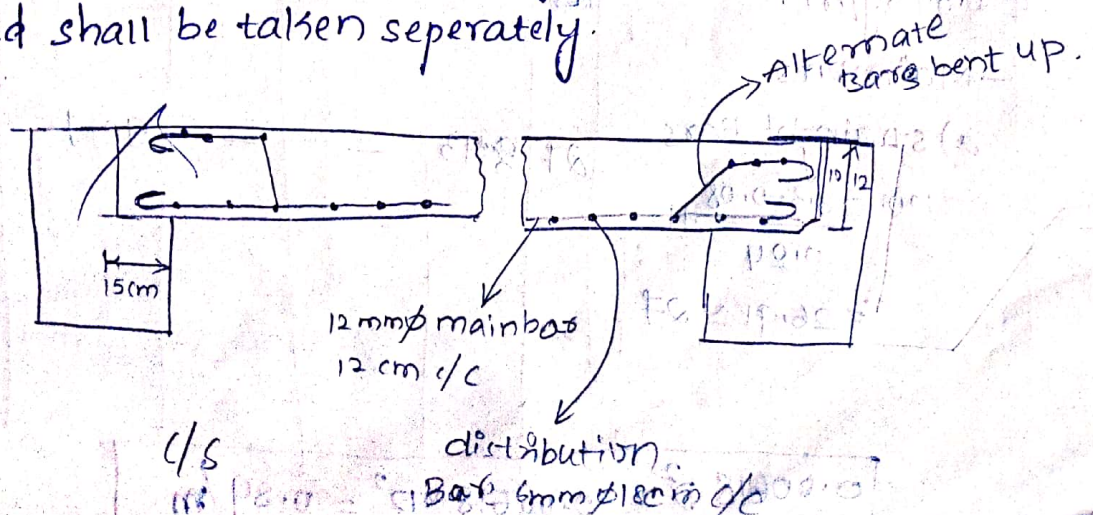 d shall be taken seperately.
Alternate
Bars bent up.
10 12
15cm
12 mmϕ mainbar
12 cm c/c
C/S
distribution
Bar 6mm ϕ 18cm c/c